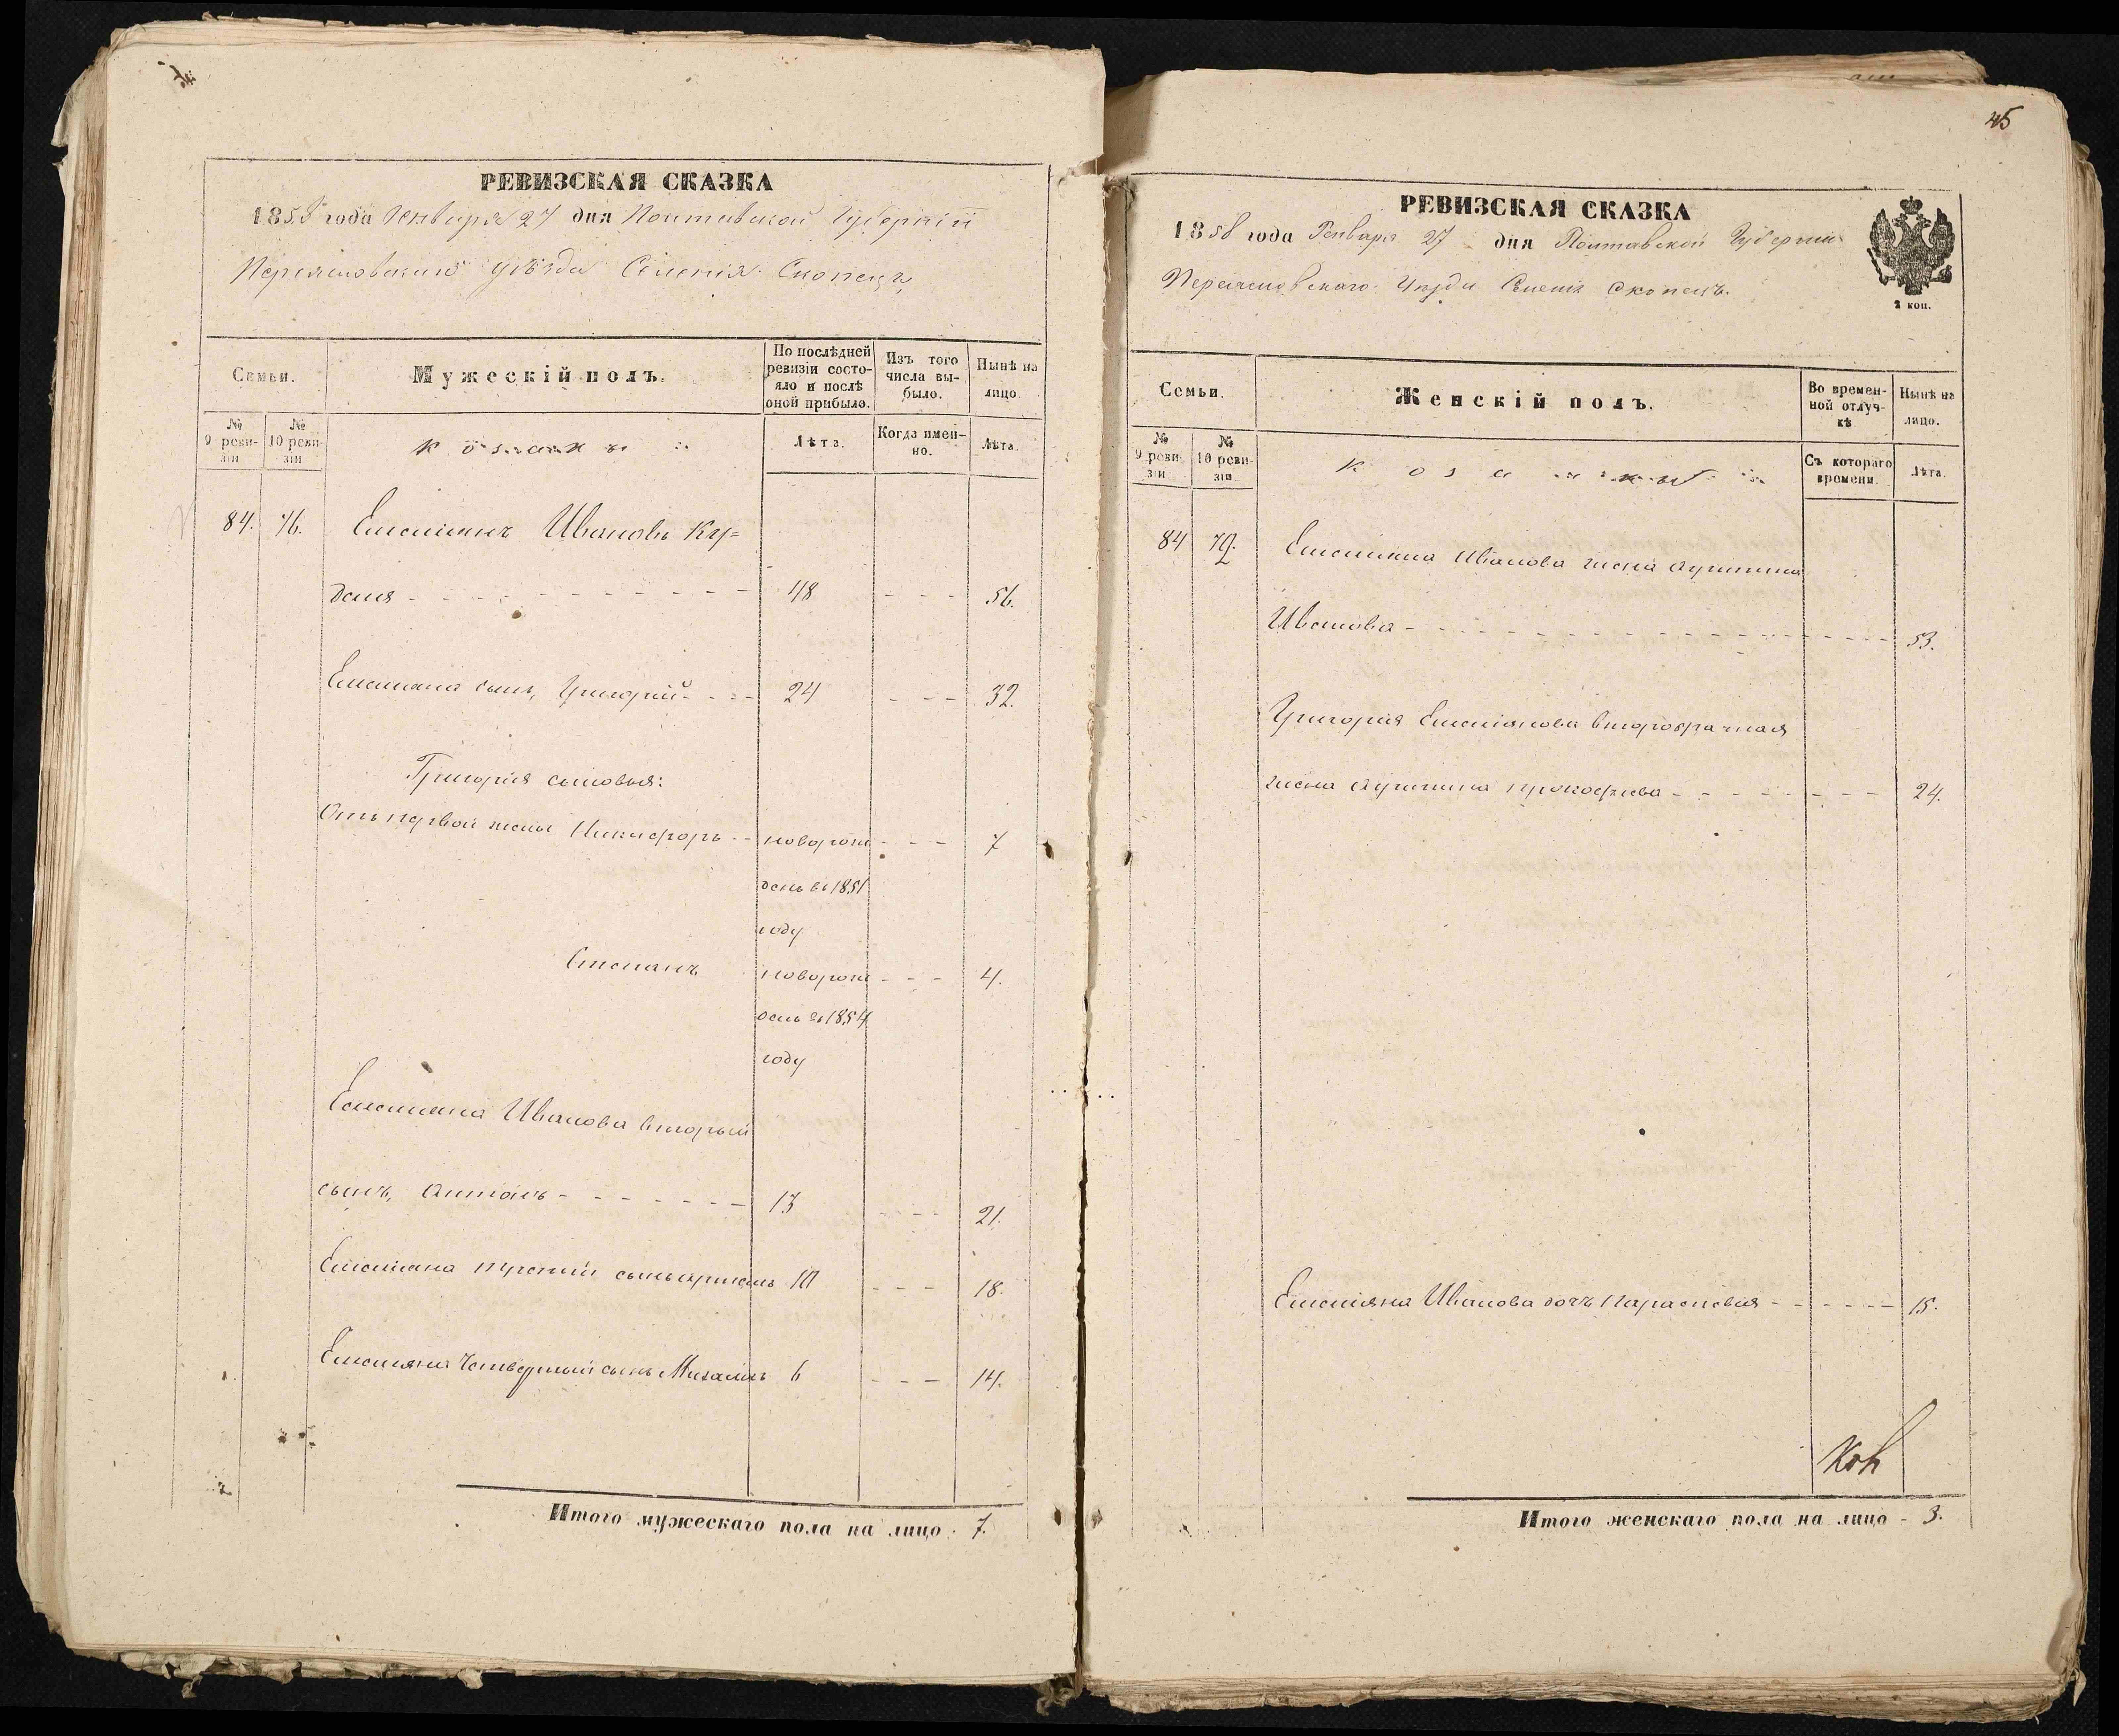 РЕВИЗСКАЯ СКАЗКА
1858 года Января 27 дня Полтавской Губерніи
Переясловскаго уѣзда Селенія Скопецъ
Семьи.
Мужескій полъ.
По послѣдней ревизіи состояло и послѣ оной прибыло.
Изъ того числа выбыло.
Нынѣ на лицо.
№ 9 ревизіи
№ 10 ревизіи
козаки
Лѣта.
Когда именно.
Лѣта.
84. 76. Емельянъ Ивановъ Ку=
деля - - - 48 - - - 56.
Емельяна сынъ, Григорій - - - 24 - - - 32.
Григорія сыновья:
Отъ первой жены Никифоръ - - новорож - - - 7
денъ въ 1851
году
Степанъ новорож - - - 4.
денъ въ 1854
году
Емельяна Иванова вторый
сынъ, Антонъ - - - 13 - - - 21.
Емельяна третій сынъ 10 - - - 18.
Емельяна Четвертый сынъ Михаилъ 6 - - - 14.
Итого мужескаго пола на лицо - 7.
45
РЕВИЗСКАЯ СКАЗКА
1858 года Января 27 дня Полтавской Губерніи
Переясловскаго Уѣзда Селенія Скопецъ.
2 коп.
Семьи.
Женскій полъ.
Во временной отлучкѣ
Нынѣ на лицо.
№ 9 ревизіи
№ 10 ревизіи
Съ котораго времени.
Лѣта.
84 Емельяна Иванова жена
Иванова - - - 53.
Григорія Емельянова второбрачная
жена Прокофьева - - - 24.
Емельяна Иванова дочь Параскевія - - - 15.
Итого женскаго пола на лицо - 3.